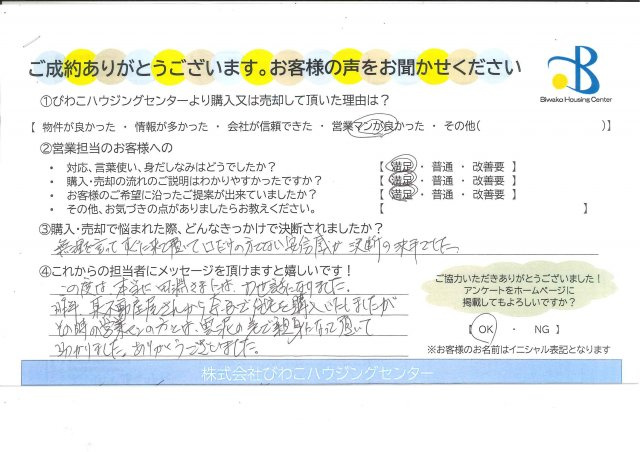 ご成約ありがとうございます。お客様の声をお聞かせください
Biwako Housing Center
①びわこハウジングセンターより購入又は売却して頂いた理由は？
【 物件が良かった ・ 情報が多かった ・ 会社が信頼できた ・ 営業マンが良かった ・ その他( )】
②営業担当のお客様への
・ 対応、言葉使い、身だしなみはどうでしたか？ 【 満足 ・ 普通 ・ 改善要 】
・ 購入・売却の流れのご説明はわかりやすかったですか？ 【 満足 ・ 普通 ・ 改善要 】
・ お客様のご希望に沿ったご提案が出来ていましたか？ 【 満足 ・ 普通 ・ 改善要 】
・ その他、お気づきの点がありましたらお教えください。 【 】
③購入・売却で悩まれた際、どんなきっかけで決断されましたか？
無理を言ってすぐに来て頂いて口だけの方でない安心感が決断の決手でした。
④これからの担当者にメッセージを頂けますと嬉しいです！
この度は本当に お世話になりました。
昨年 某不動産屋さんから 分譲を購入いたしましたが
その時の営業マンの方とは 雲泥の差で親身になって頂いて
助かりました。ありがとうございました。
ご協力いただきありがとうございました！
アンケートをホームページに
掲載してもよろしいですか？
【 OK ・ NG 】
※お客様のお名前はイニシャル表記となります
株式会社びわこハウジングセンター